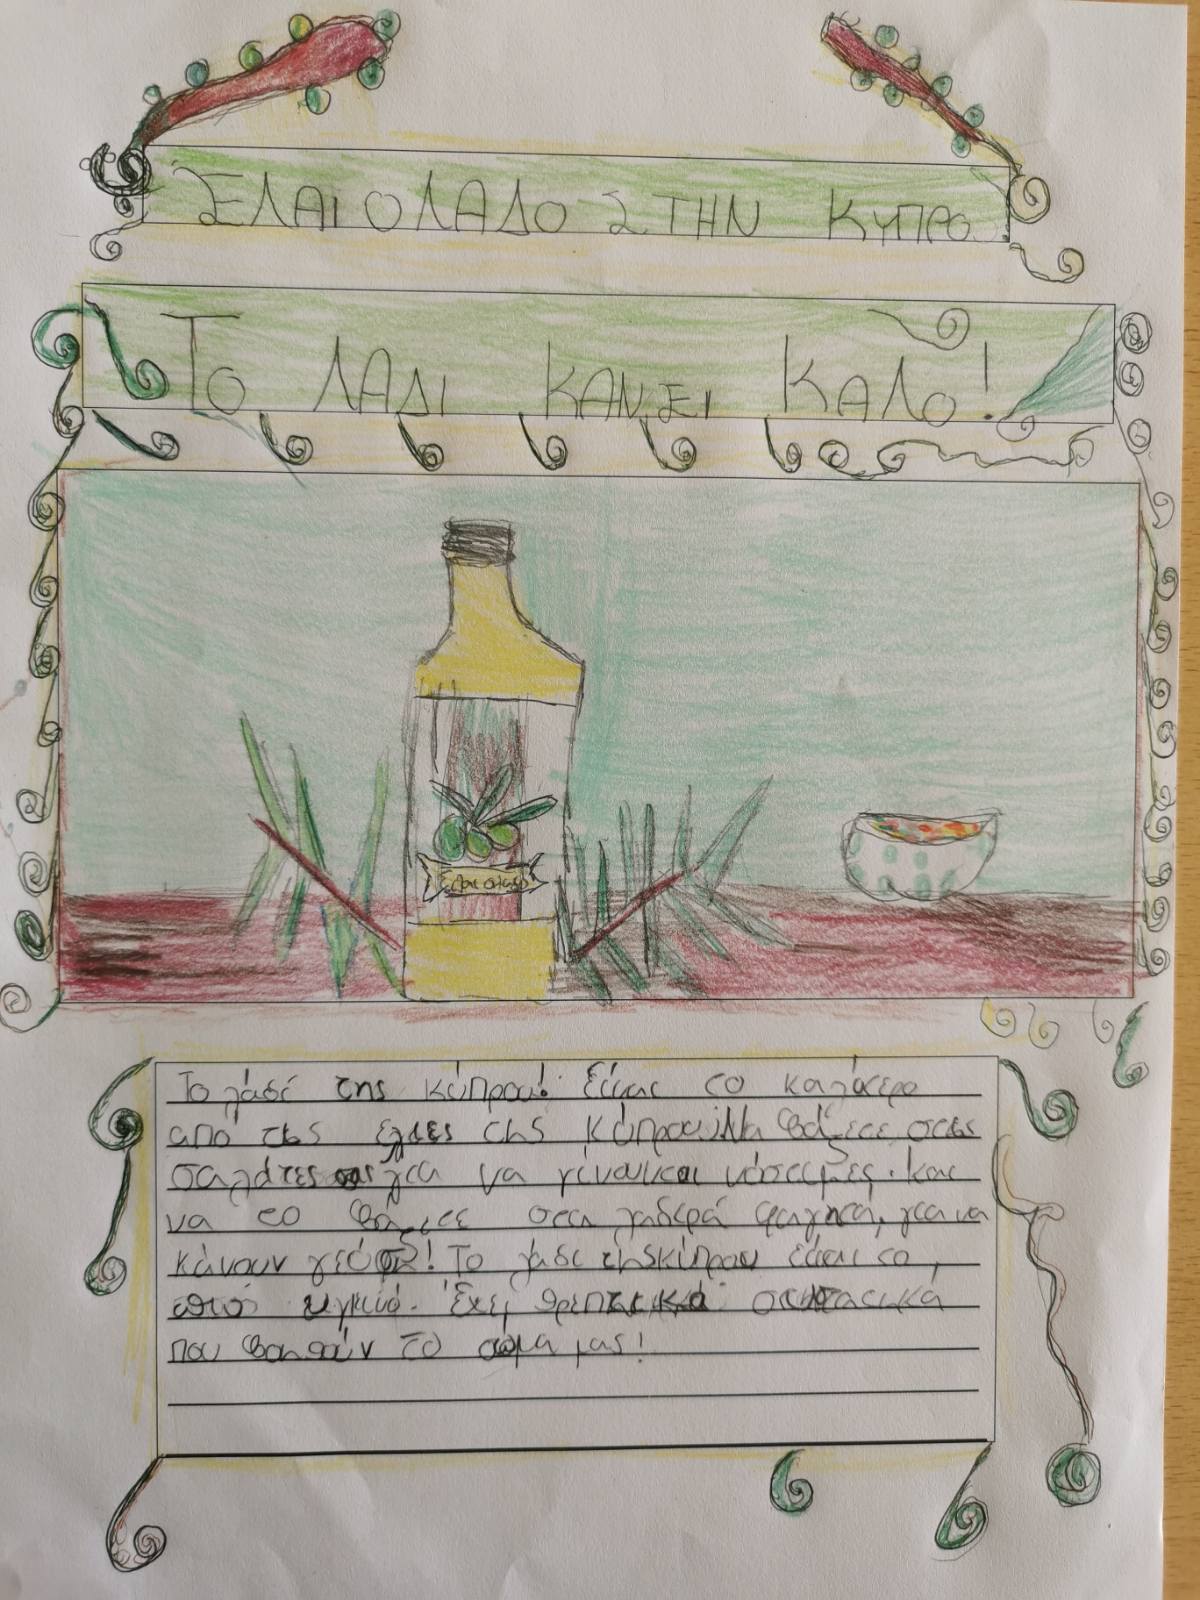 ΕΛΑΙΟΛΑΔΟ ΣΤΗΝ ΚΥΠΡΟ
ΤΟ ΛΑΔΙ ΚΑΝΕΙ ΚΑΛΟ!
Ελαιολαδο
Το λάδι της Κύπρου! Είναι το καλύτερο
από τις ελιές της Κύπρου. Να βάζετε στις
σαλάτες για να γίνονται νόστιμες. Και
να το βάζετε στα λαδερά φαγητα, για να
κάνουν γεύση! Το λάδι της Κύπρου είναι το
πιό υγιεινό. Έχει θρεπτικά συστατικά
που βοηθούν το σώμα μας!